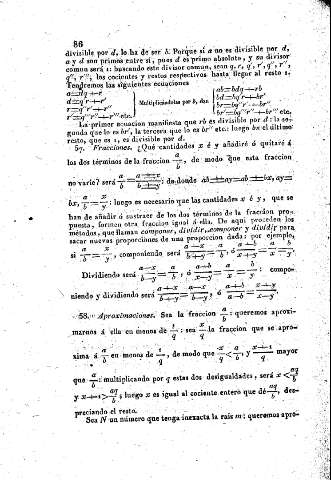 86
divisible por d, lo ha de ser b. Porque si a no es divisible por d,
a y d son primos entre sí, pues d es primo absoluto, y su divisor
comun será 1: buscando este divisor comun, sean q, r, q', r', q'', r'',
q''', r''', los cocientes y restos respectivos hasta llegar al resto 1.
Tendremos las siguientes ecuaciones
a=dq+r
d=q'r+r'
r=q''r'+r''
r'=q'''r''+r''' etc.
Multiplicándolas por b, dan
ab=bdq+rb
bd=bq'r+br'
br=bq''r'+br''
br'=bq'''r''+br''' etc.
La primer ecuacion manifiesta que rb es divisible por d: la segunda
que lo es br', la tercera que lo es br'' etc: luego bx el último
resto, que es 1, es divisible por d.
57. Fracciones. ¿Qué cantidades x é y añadiré ó quitaré á
los dos términos de la fraccion a/b, de modo que esta fraccion
no varíe? será a/b = a±x/b±y: de donde ab±ay=ab±bx, ay=
bx, a/b = x/y: luego es necesario que las cantidades x é y, que se
han de añadir ó sustraer de los dos términos de la fraccion propuesta,
formen otra fraccion igual á ella. De aqui proceden los
métodos, que llaman componer, dividir, componer y dividir para
sacar nuevas proporciones de una proporcion dada: por ejemplo,
si a/b = x/y, componiendo será a+x/b+y = a/b, ó a+b/x+y = a/x = b/y
Dividiendo será a−x/b−y = a/b, ó a−b/x−y = a/x = b/y: componiendo
y dividiendo será a+x/b+y = a−x/b−y, ó a+b/a−b = x+y/x−y.
58. Aproximaciones. Sea la fraccion a/b: queremos aproximarnos
á ella en menos de 1/q: sea x/q la fraccion que se aproxima
á a/b en menos de 1/q, de modo que x/q < a/b, y x+1/q mayor
que a/b: multiplicando por q estas dos desigualdades, será x < aq/b
y x+1 > aq/b; luego x es igual al cociente entero que dé aq/b, despreciando
el resto.
Sea N un número que tenga inexacta la raiz m: queremos apro-